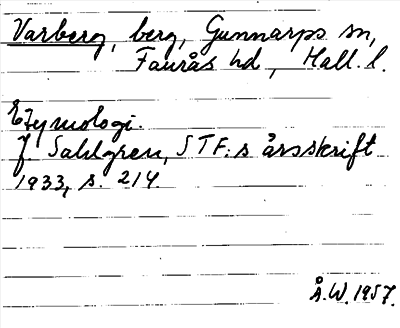 Varberg, berg, Gunnarps sn,
Faurås hd, Hall. l.
Etymologi.
J. Sahlgren, STF:s årsskrift
1933, s. 214.
Å.W. 1957.